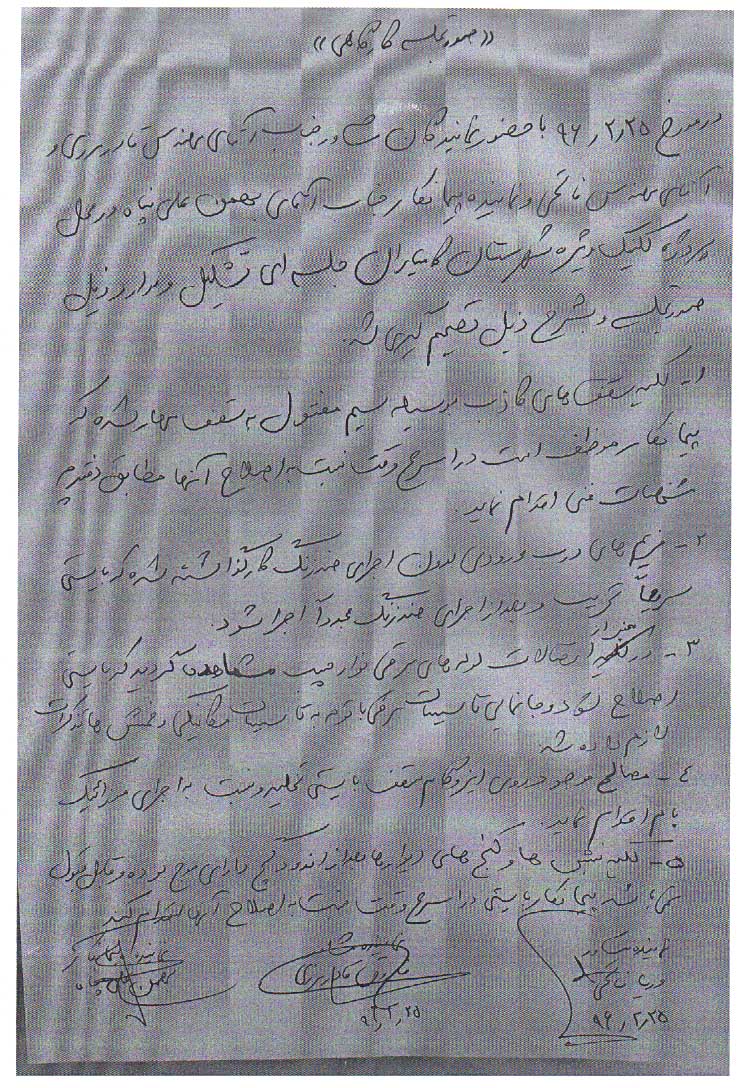 «صورتجلسه کارگاهی»
در مورخ ۹۶٫۲٫۲۵ با حضور نمایندگان مشاور جناب آقای مهندس قادر مرزی و
آقای مهندس فاتحی و نماینده پیمانکار جناب آقای بهمن علی پناه در محل
پروژه کلنیک ویژه شهرستان کامیاران جلسه ای تشکیل و موارد ذیل
صورتجلسه و بشرح ذیل تصمیم گیری شد.
۱- کلیه سقف های کاذب بوسیله سیم مفتول به سقف مهار شده که
پیمانکار موظف است در اسرع وقت نسبت به اصلاح آنها مطابق نقشه و
مشخصات فنی اقدام نماید.
۲- فریم های درب ورودی بدون اجرای ضدزنگ کارگذاشته شده که بایستی
سریعاً تخریب و بعد از اجرای ضدزنگ مجدداً اجرا شود.
۳- در اتصالات لوله های برقی نوار چسب مشاهده گردید که بایستی
اصلاح شود و جانمایی تاسیسات برقی با توجه به تاسیسات مکانیکی و تذکرات
لازم داده شد
۴- مصالح موجود روی ایزوگام سقف بایستی تخلیه و نسبت به اجرای موزائیک
بام اقدام نماید.
۵- کلیه نبش ها و کنج های دیوارها بعد از اندود گچ دارای موج بوده و قابل قبول
نمی باشد پیمانکار بایستی در اسرع وقت نسبت به اصلاح آنها اقدام کند
نماینده مشاور
فاتحی
۹۶٫۲٫۲۵
نماینده مشاور
قادر مرزی
۹۶٫۲٫۲۵
نماینده پیمانکار
بهمن علی پناه